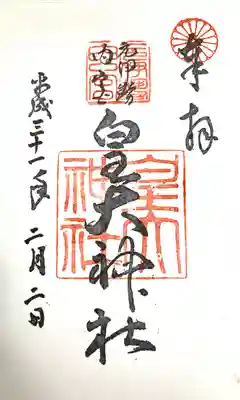 奉拝
元伊勢
内宮
皇大神社
平成三十一年二月二日
皇大
神社